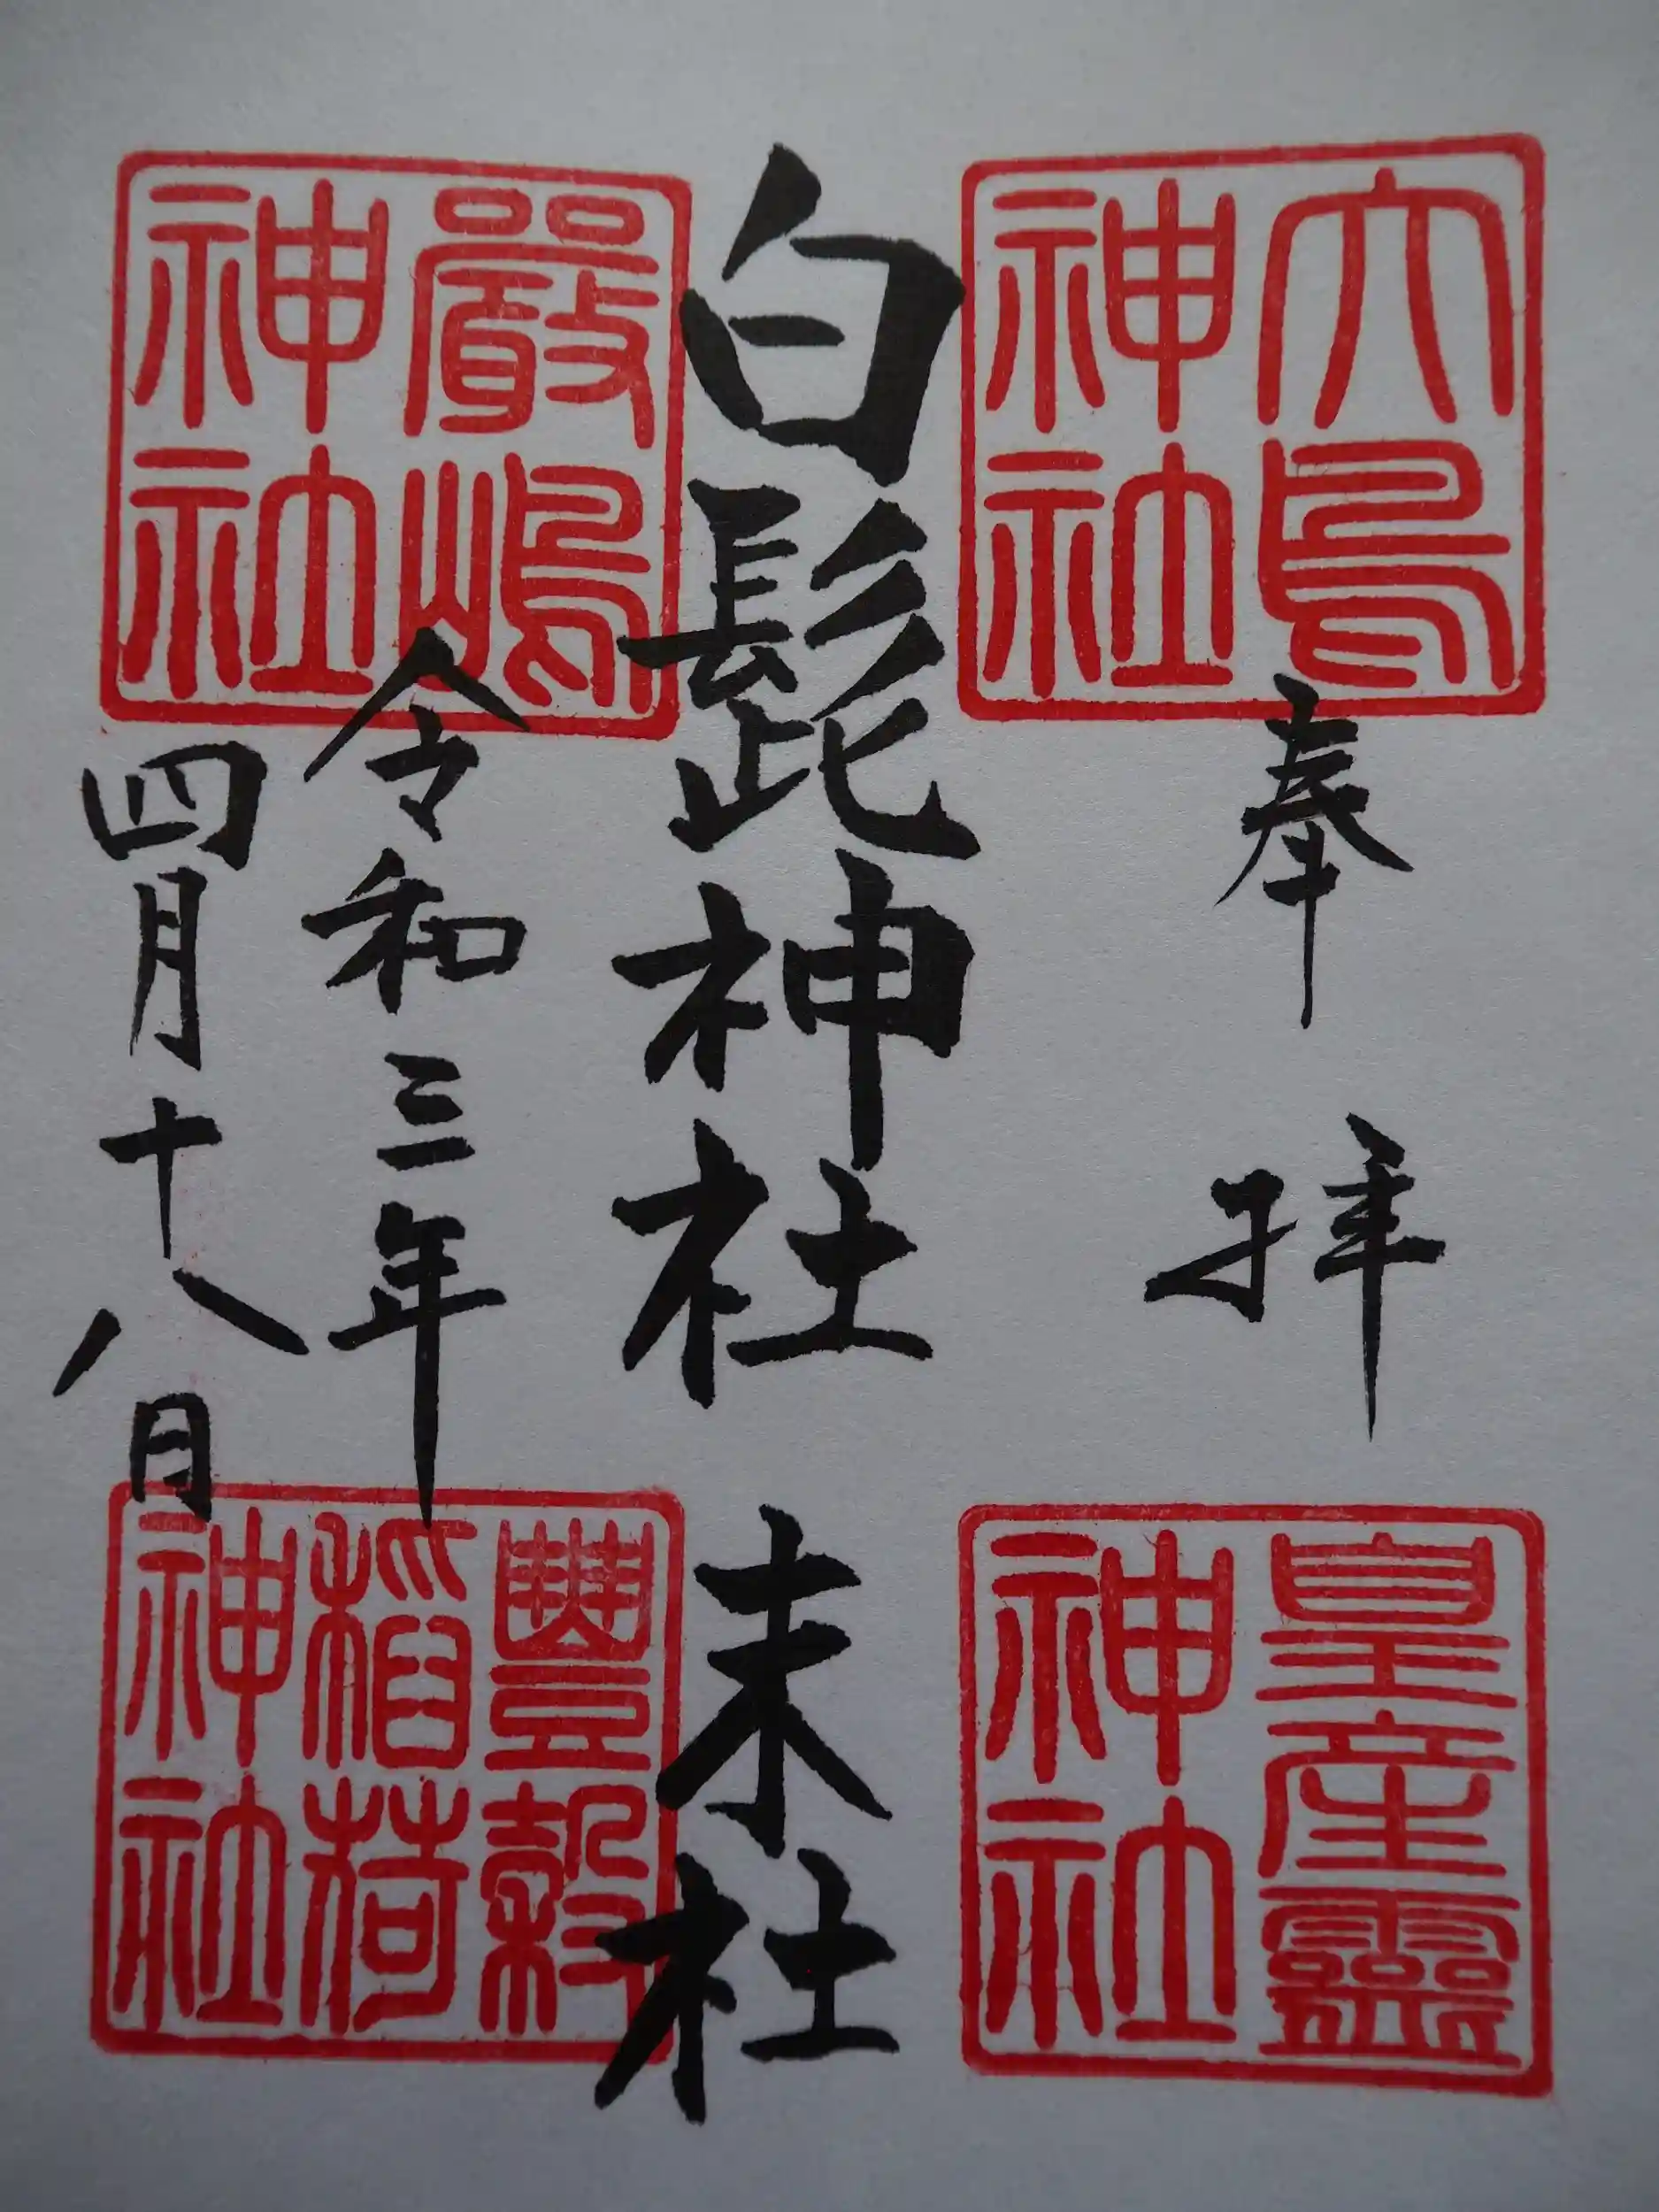 奉拝
大鳥
神社
皇産靈
神社
白髭神社 末社
嚴嶋
神社
令和三年
四月十八日
豐穀
稲荷
神社